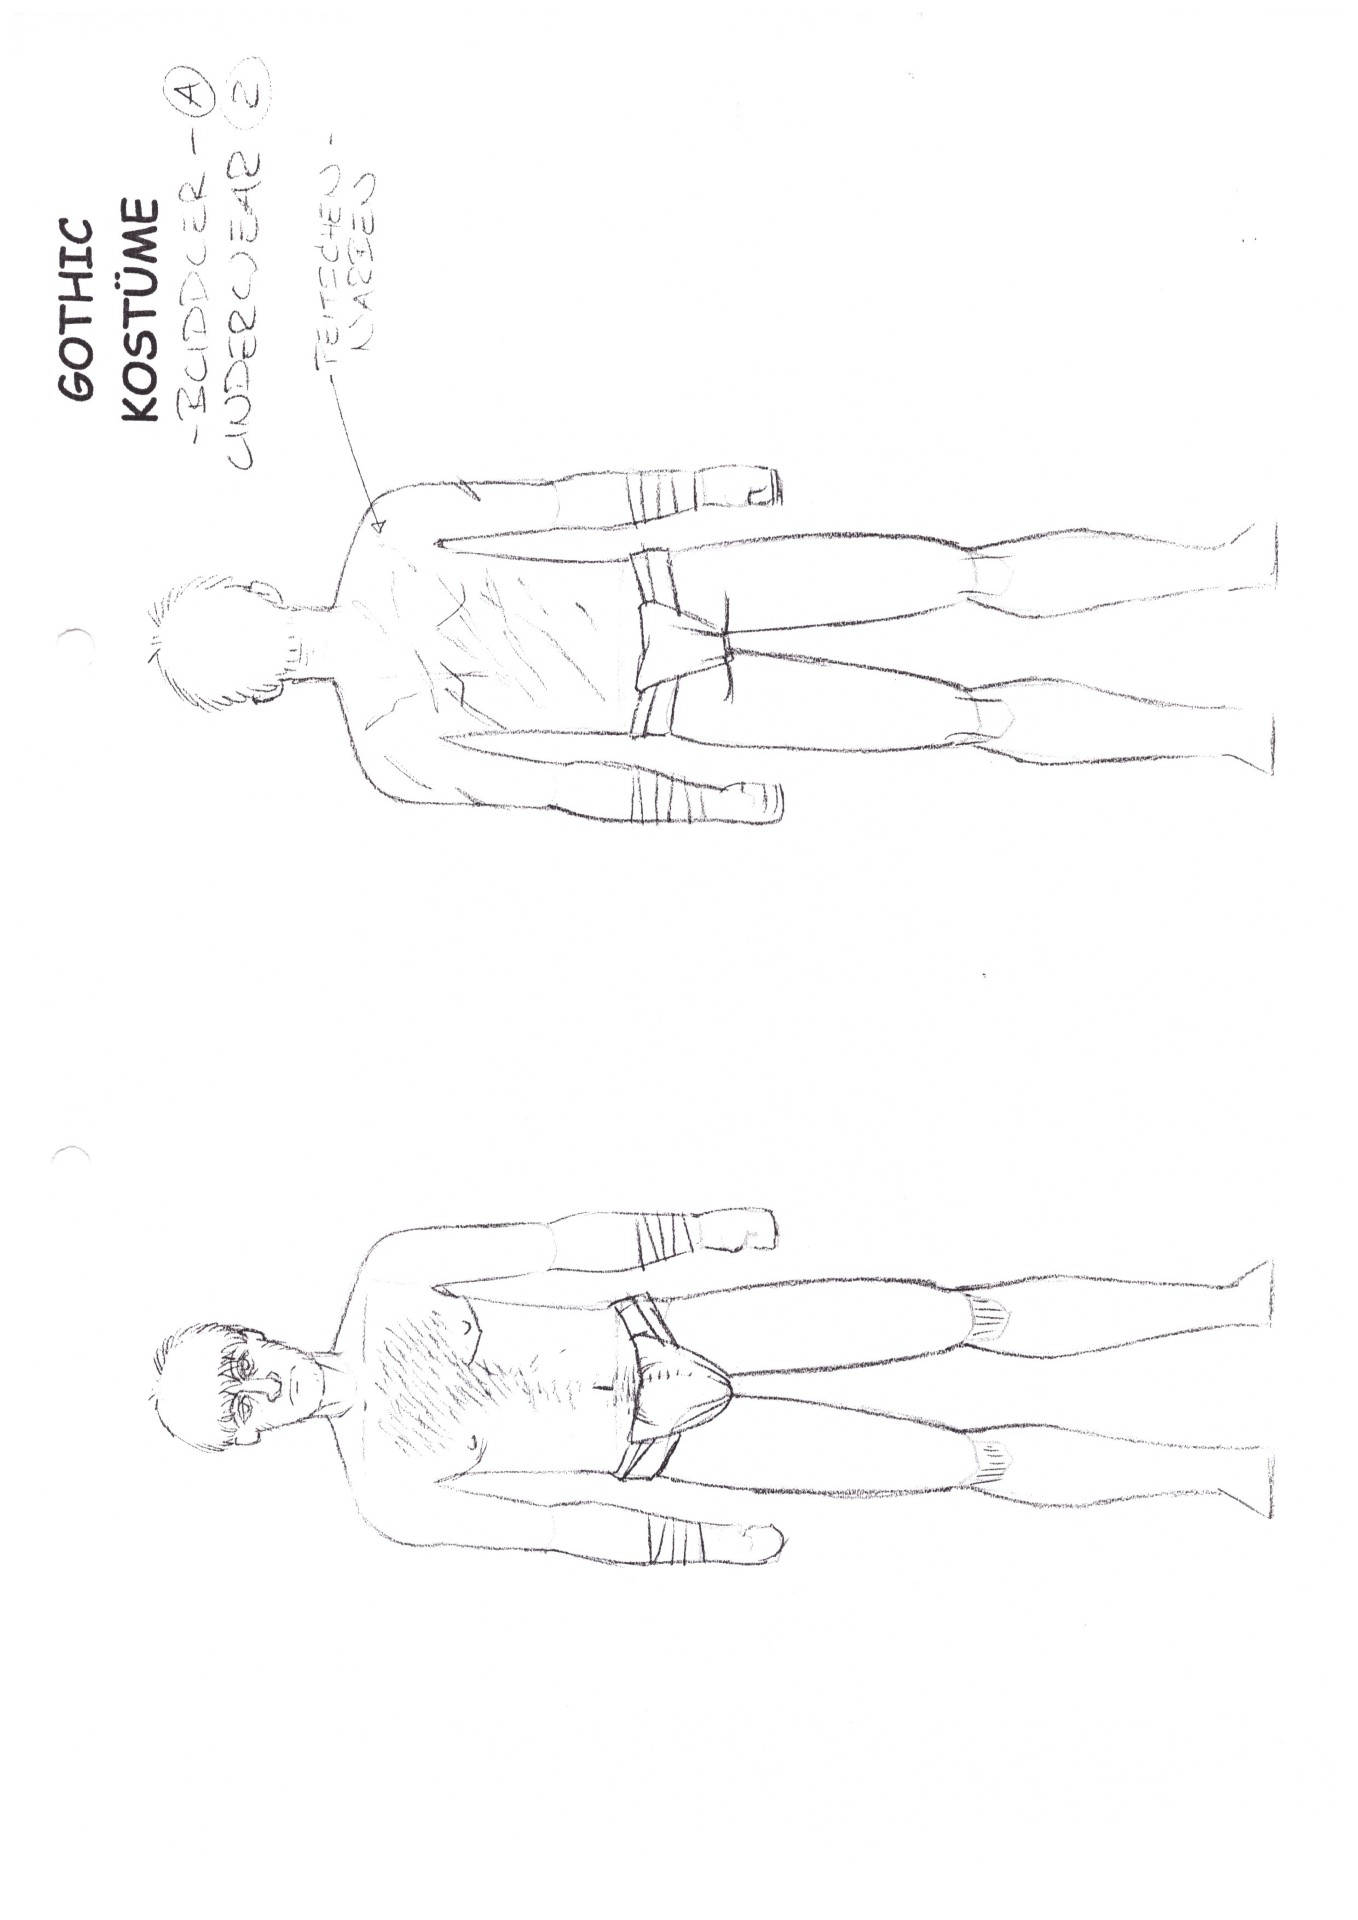 GOTHIC
KOSTÜME
-BUDDLER-A
UNDERWEAR 2
PEITSCHEN-
NARBEN